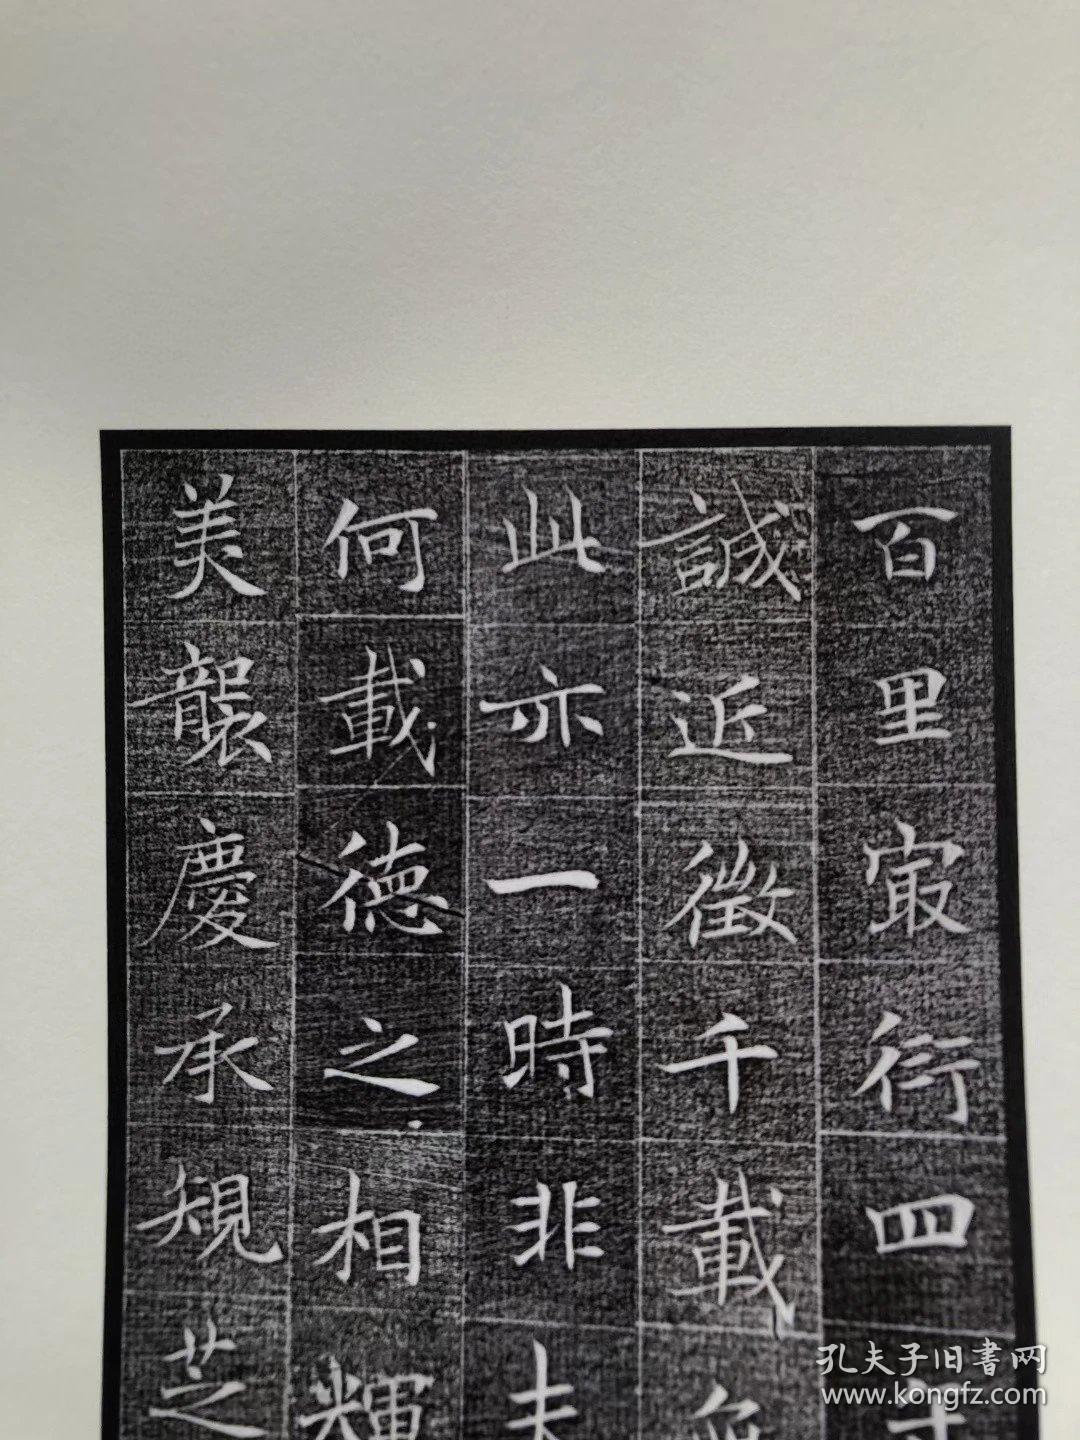 百里寂衍四
誠近徵千載
此亦一時非夫
何載德之相輝
美襲慶承規芝
孔夫子旧書网
www.kongfz.com